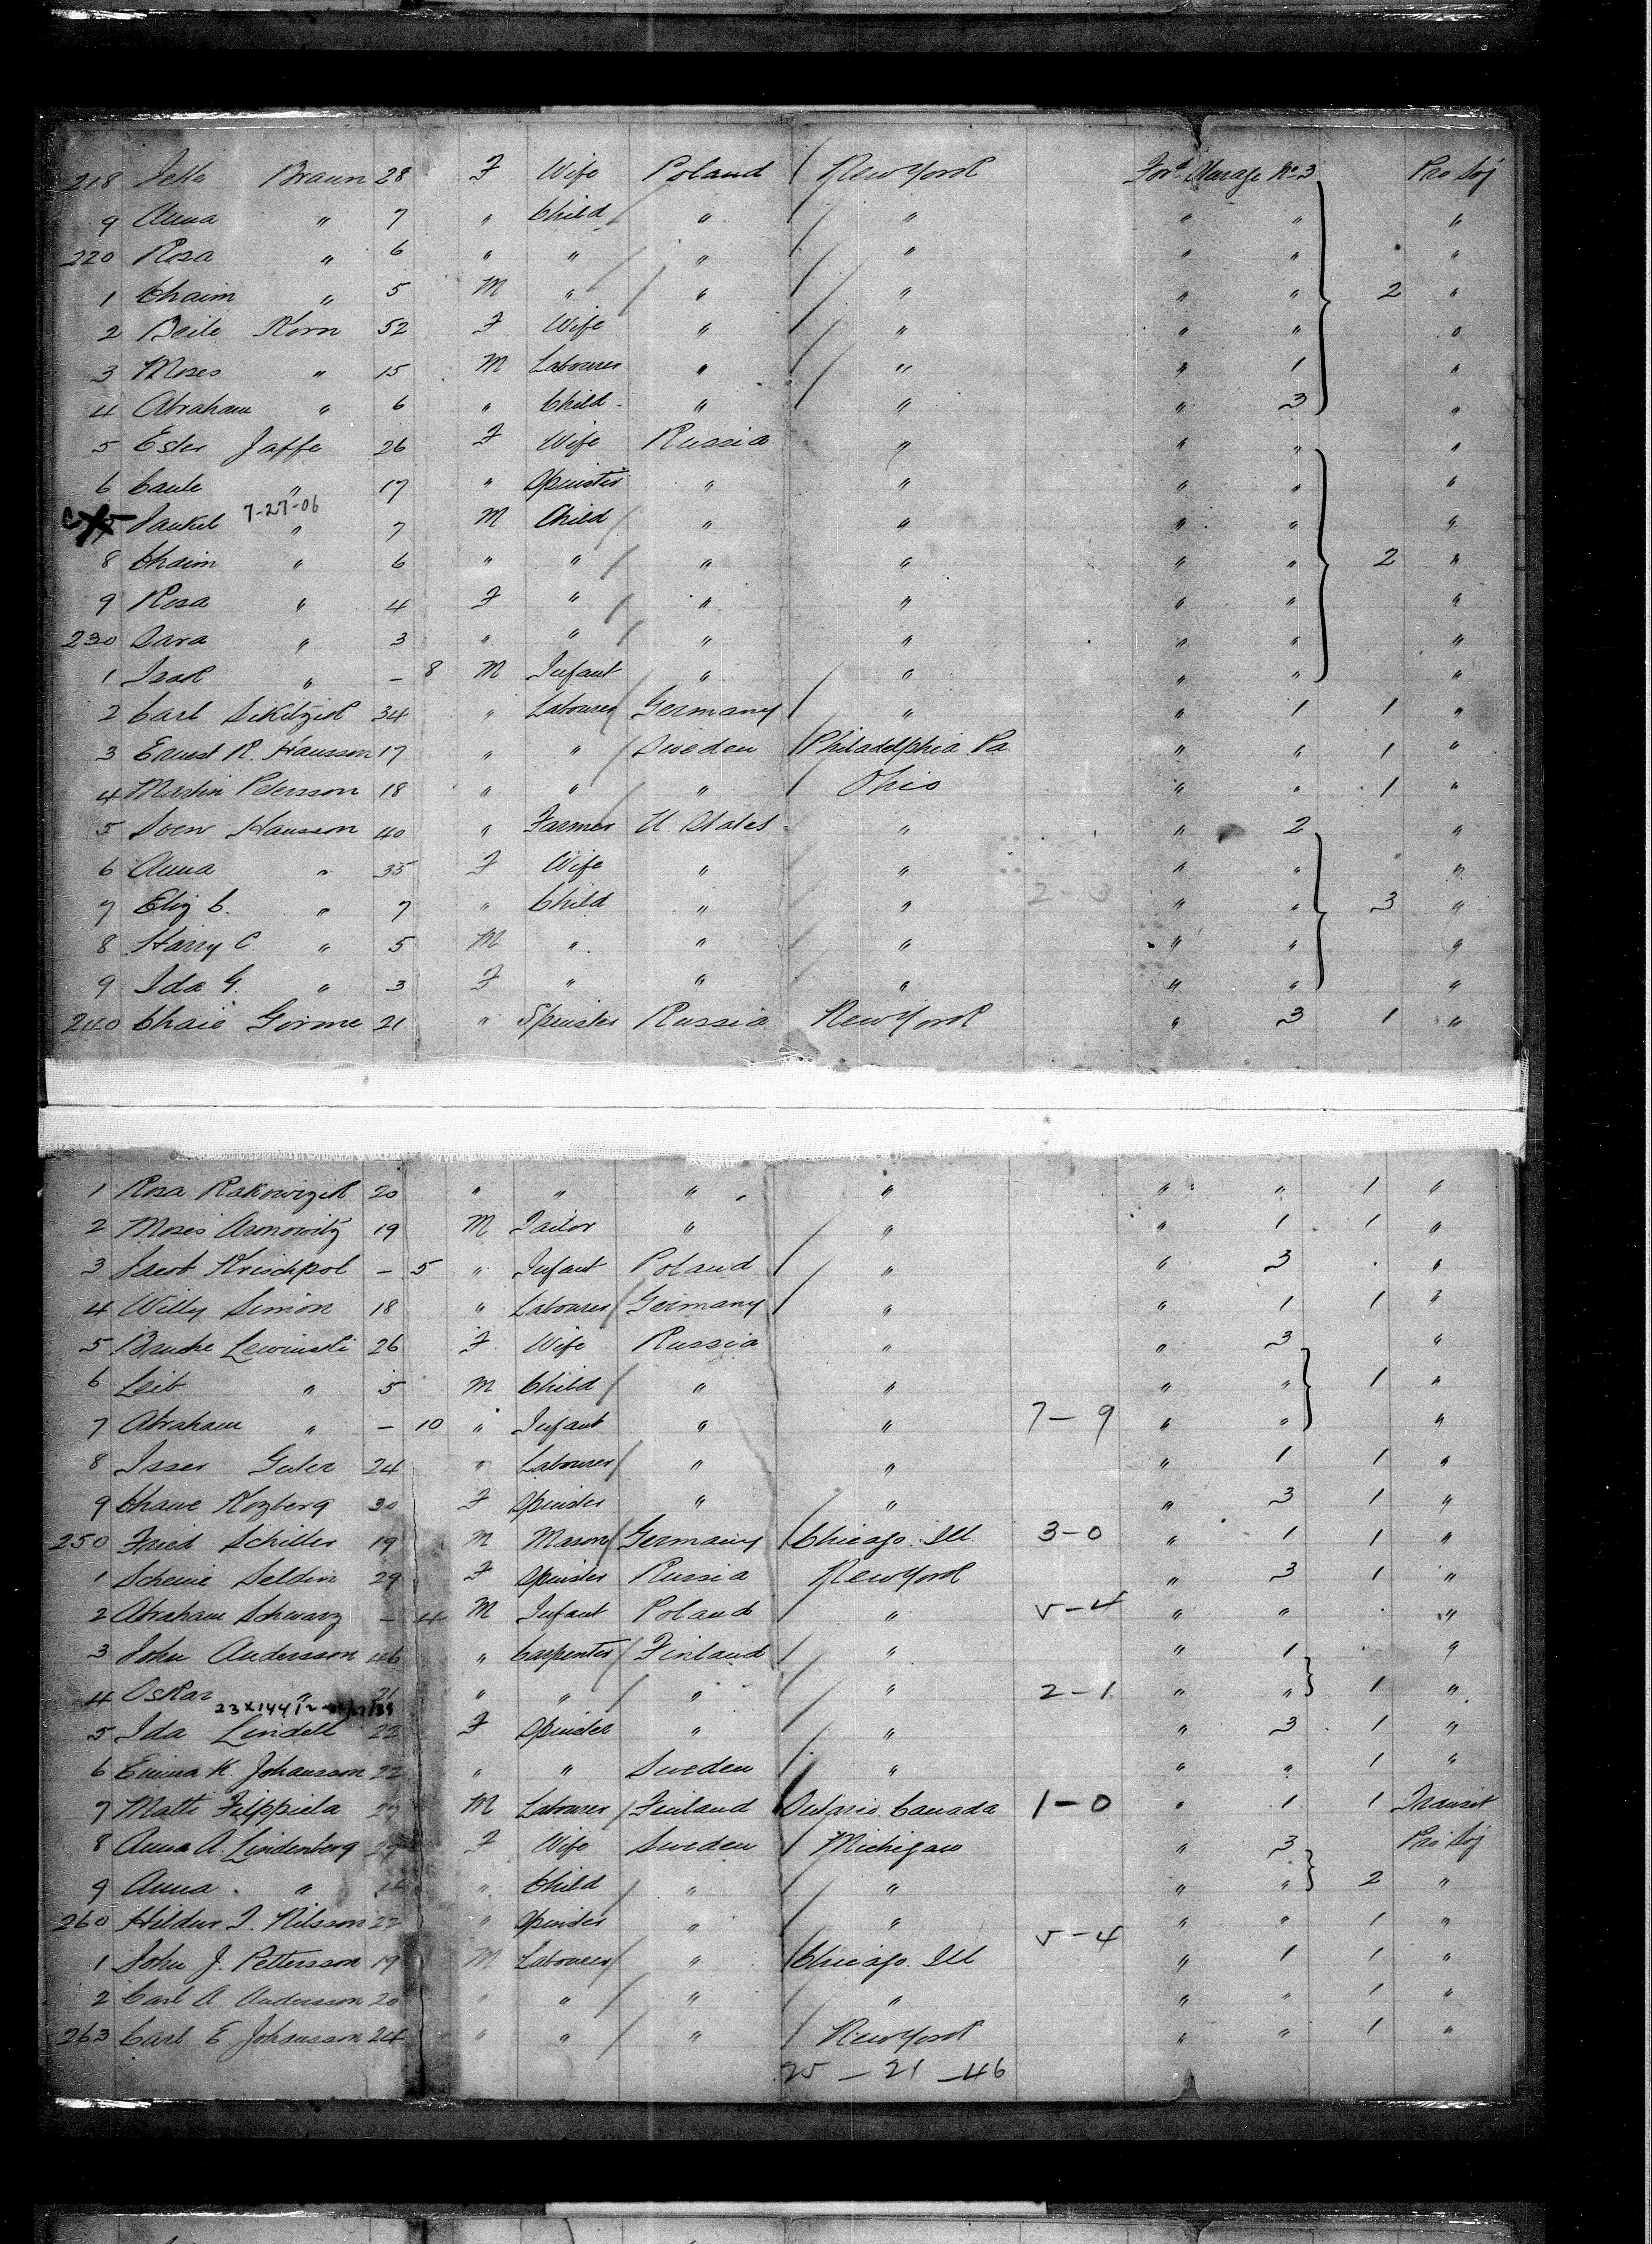 218 Jette Braun 28 F Wife Poland New York For'd Steerage No 3 Pro Soj
9 Anna " 7 " Child " " " " "
220 Rosa " 6 " " " " " " "
1 Chaim " 5 M " " " " " 2 "
2 Beile Korn 52 F Wife " " " " "
3 Moses " 15 M Labourer " " " 1 "
4 Abraham " 6 " Child " " " 3 "
5 Ester Jaffe 26 F Wife Russia " " " "
6 " 17 " Spinster " " " " "
7-27-06
Jankel " 7 M Child " " " " "
8 Chaim " 6 " " " " " " 2 "
9 Rosa " 4 F " " " " " "
230 Sara " 3 " " " " " " "
1 Isak " – 8 M Infant " " " " "
2 Carl 34 " Labourer Germany " " 1 1 "
3 Ernst R. Hansson 17 " " Sweden Philadelphia Pa " " 1 "
4 Martin Petersson 18 " " " Ohio " " 1 "
5 Sven Hansson 40 " Farmer U. States " " 2 "
6 Anna " 35 F Wife " " " " "
7 Eliz C. " 7 " Child " " 2-3 " " 3 "
8 Harry C. " 5 M " " " " " "
9 Ida G. " 3 F " " " " " "
240 Chaie Gorme 21 " Spinster Russia New York " 3 1 "
1 Rosa Rakowizik 20 " " " " " " 1 "
2 Moses Aronowitz 19 M Tailor " " " 1 1 "
3 Jacob Krischpol – 5 " Infant Poland " " 3 "
4 Willy Simon 18 " Labourer Germany " " 1 1 "
5 Bruche Lewinski 26 F Wife Russia " " 3 "
6 Leib " 5 M Child " " " " 1 "
7 Abraham " – 10 " Infant " " 7-9 " " "
8 Isser Guter 24 " Labourer " " " 1 1 "
9 Chawe Kozberg 30 F Spinster " " " 3 1 "
250 Fried Schiller 19 M Mason Germany Chicago. Ill. 3-0 " 1 1 "
1 Scheine Seldin 29 F Spinster Russia New York " 3 1 "
2 Abraham Schwarz – 4 M Infant Poland " 5-4 " " "
3 John Andersson 46 " Carpenter Finland " " 1 "
4 Oskar " 21 " " " " 2-1 " " 1 "
23X14412
5 Ida Lindell 22 F Spinster " " " 3 1 "
6 Emma K. Johansson 22 " " Sweden " " " 1 "
7 Matti Filppiela 29 M Labourer Finland Ontario. Canada 1-0 " 1 1 Transit
8 Anna A. Lindenberg F Wife Sweden Michigan " 3 Pro Soj
9 Anna " " Child " " " " 2 "
260 Hildur I. Nilsson 22 " Spinster " " " " 1 "
5-4
1 John J. Pettersson 19 M Labourer " Chicago. Ill " 1 1 "
2 Carl A. Andersson 20 " " " " " " 1 "
263 Carl E. Johansson 24 " " " New York " " 1 "
25 – 21 – 46